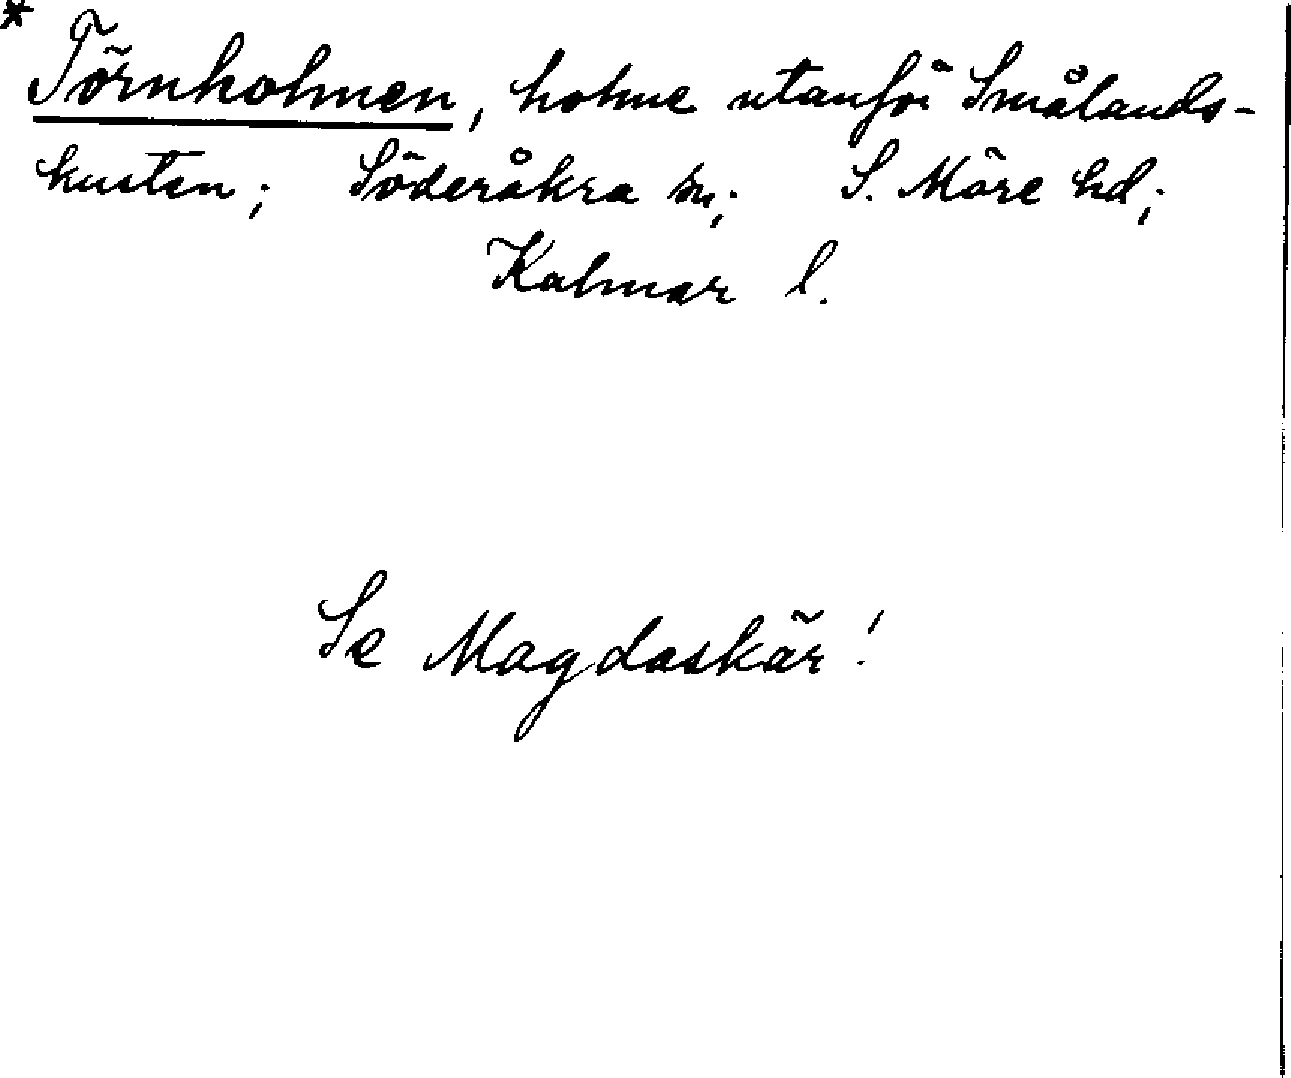 * Törnholmen, holme utanför Smålands-
kusten; Söderåkra sn; S. Möre hd;
Kalmar l.
Se Magdaskär!